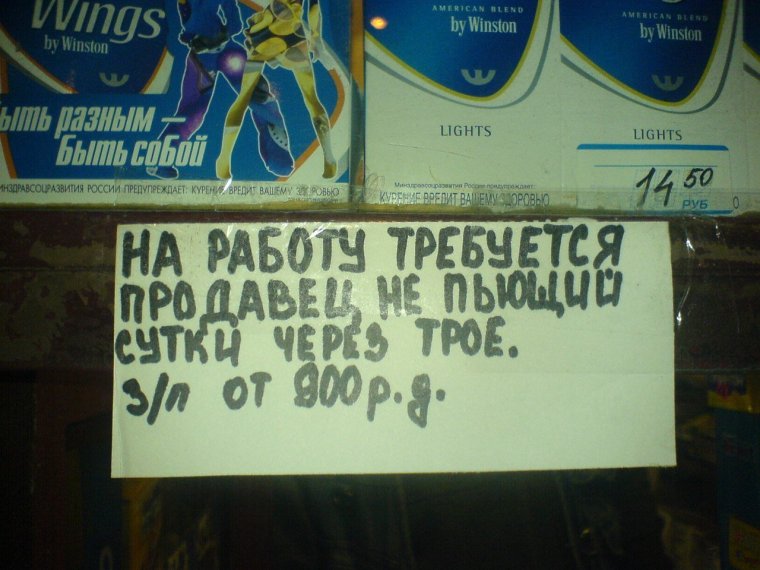 Wings
by Winston
ыть разным —
Быть собой
НЗДРАВСОЦРАЗВИТИЯ РОССИИ ПРЕДУПРЕЖДАЕТ: КУРЕНИЕ ВРЕДИТ ВАШЕМУ ЗДОРОВЬЮ
AMERICAN BLEND
by Winston
LIGHTS
Минздравсоцразвития России предупреждает:
КУРЕНИЕ ВРЕДИТ ВАШЕМУ ЗДОРОВЬЮ
AMERICAN BLEND
by Winston
LIGHTS
14 50
РУБ
НА РАБОТУ ТРЕБУЕТСЯ
ПРОДАВЕЦ НЕ ПЬЮЩИЙ
СУТКИ ЧЕРЕЗ ТРОЕ.
З/П ОТ 800 р. д.